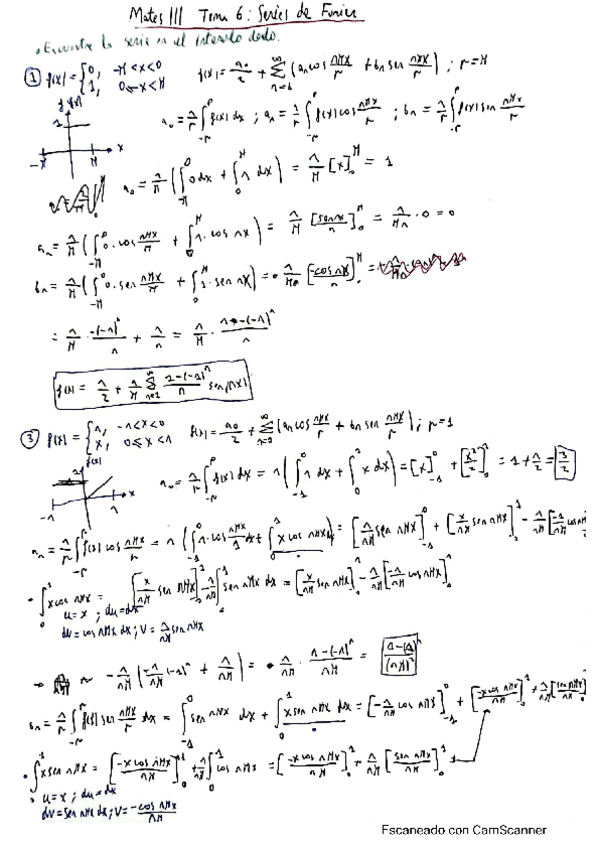 Mates III Tema 6: Series de Fourier
• Encuentre la serie en el intervalo dado.
① f(x) = {0, -π<x<0 f(x) = a₀/2 + Σ (aₙ cos nπx/p + bₙ sen nπx/p) ; p=π
1, 0≤x<π
a₀ = 1/p ∫ f(x) dx ; aₙ = 1/p ∫ f(x) cos nπx/p ; bₙ = 1/p ∫ f(x) sin nπx/p
a₀ = 1/π (∫ 0 dx + ∫ 1 dx) = 1/π [x] = 1
aₙ = 1/π (∫ 0 · cos nπx/π + ∫ 1 · cos nx) = 1/π [sen nx/n] = 1/πn · 0 = 0
bₙ = 1/π (∫ 0 · sen nπx/π + ∫ 1 · sen nx) = 1/π [-cos nx/n] =
= 1/π · -(-1)ⁿ/n + 1/n = 1/π · 1-(-1)ⁿ/n
f(x) = 1/2 + 1/π Σ 1-(-1)ⁿ/n sen(nx)
③ f(x) = {1, -1<x<0 f(x) = a₀/2 + Σ (aₙ cos nπx/p + bₙ sen nπx/p) ; p=1
x, 0≤x<1
a₀ = 1/p ∫ f(x) dx = 1 (∫ 1 dx + ∫ x dx) = [x] + [x²/2] = 1 + 1/2 = 3/2
aₙ = 1/p ∫ f(x) cos nπx/p = 1 (∫ 1 · cos nπx/1 dx + ∫ x cos nπx dx) = [1/nπ sen nπx] + [x/nπ sen nπx] - 1/nπ [-1/nπ cos nπx
• ∫ x cos nπx = [x/nπ sen nπx] - 1/nπ ∫ sen nπx dx = [x/nπ sen nπx] - 1/nπ [-1/nπ cos nπx]
u=x ; du=dx
dv = cos nπx dx ; v = 1/nπ sen nπx
bₙ = 1/p ∫ f(x) sen nπx/p dx = ∫ sen nπx dx + ∫ x sen nπx dx = [-1/nπ cos nπx] + [-x cos nπx/nπ] + 1/nπ [sen nπx/nπ]
• ∫ x sen nπx = [-x cos nπx/nπ] + 1/nπ ∫ cos nπx = [-x cos nπx/nπ] + 1/nπ [sen nπx/nπ]
u=x ; du=dx
dv = sen nπx dx ; v = -cos nπx/nπ
Escaneado con CamScanner